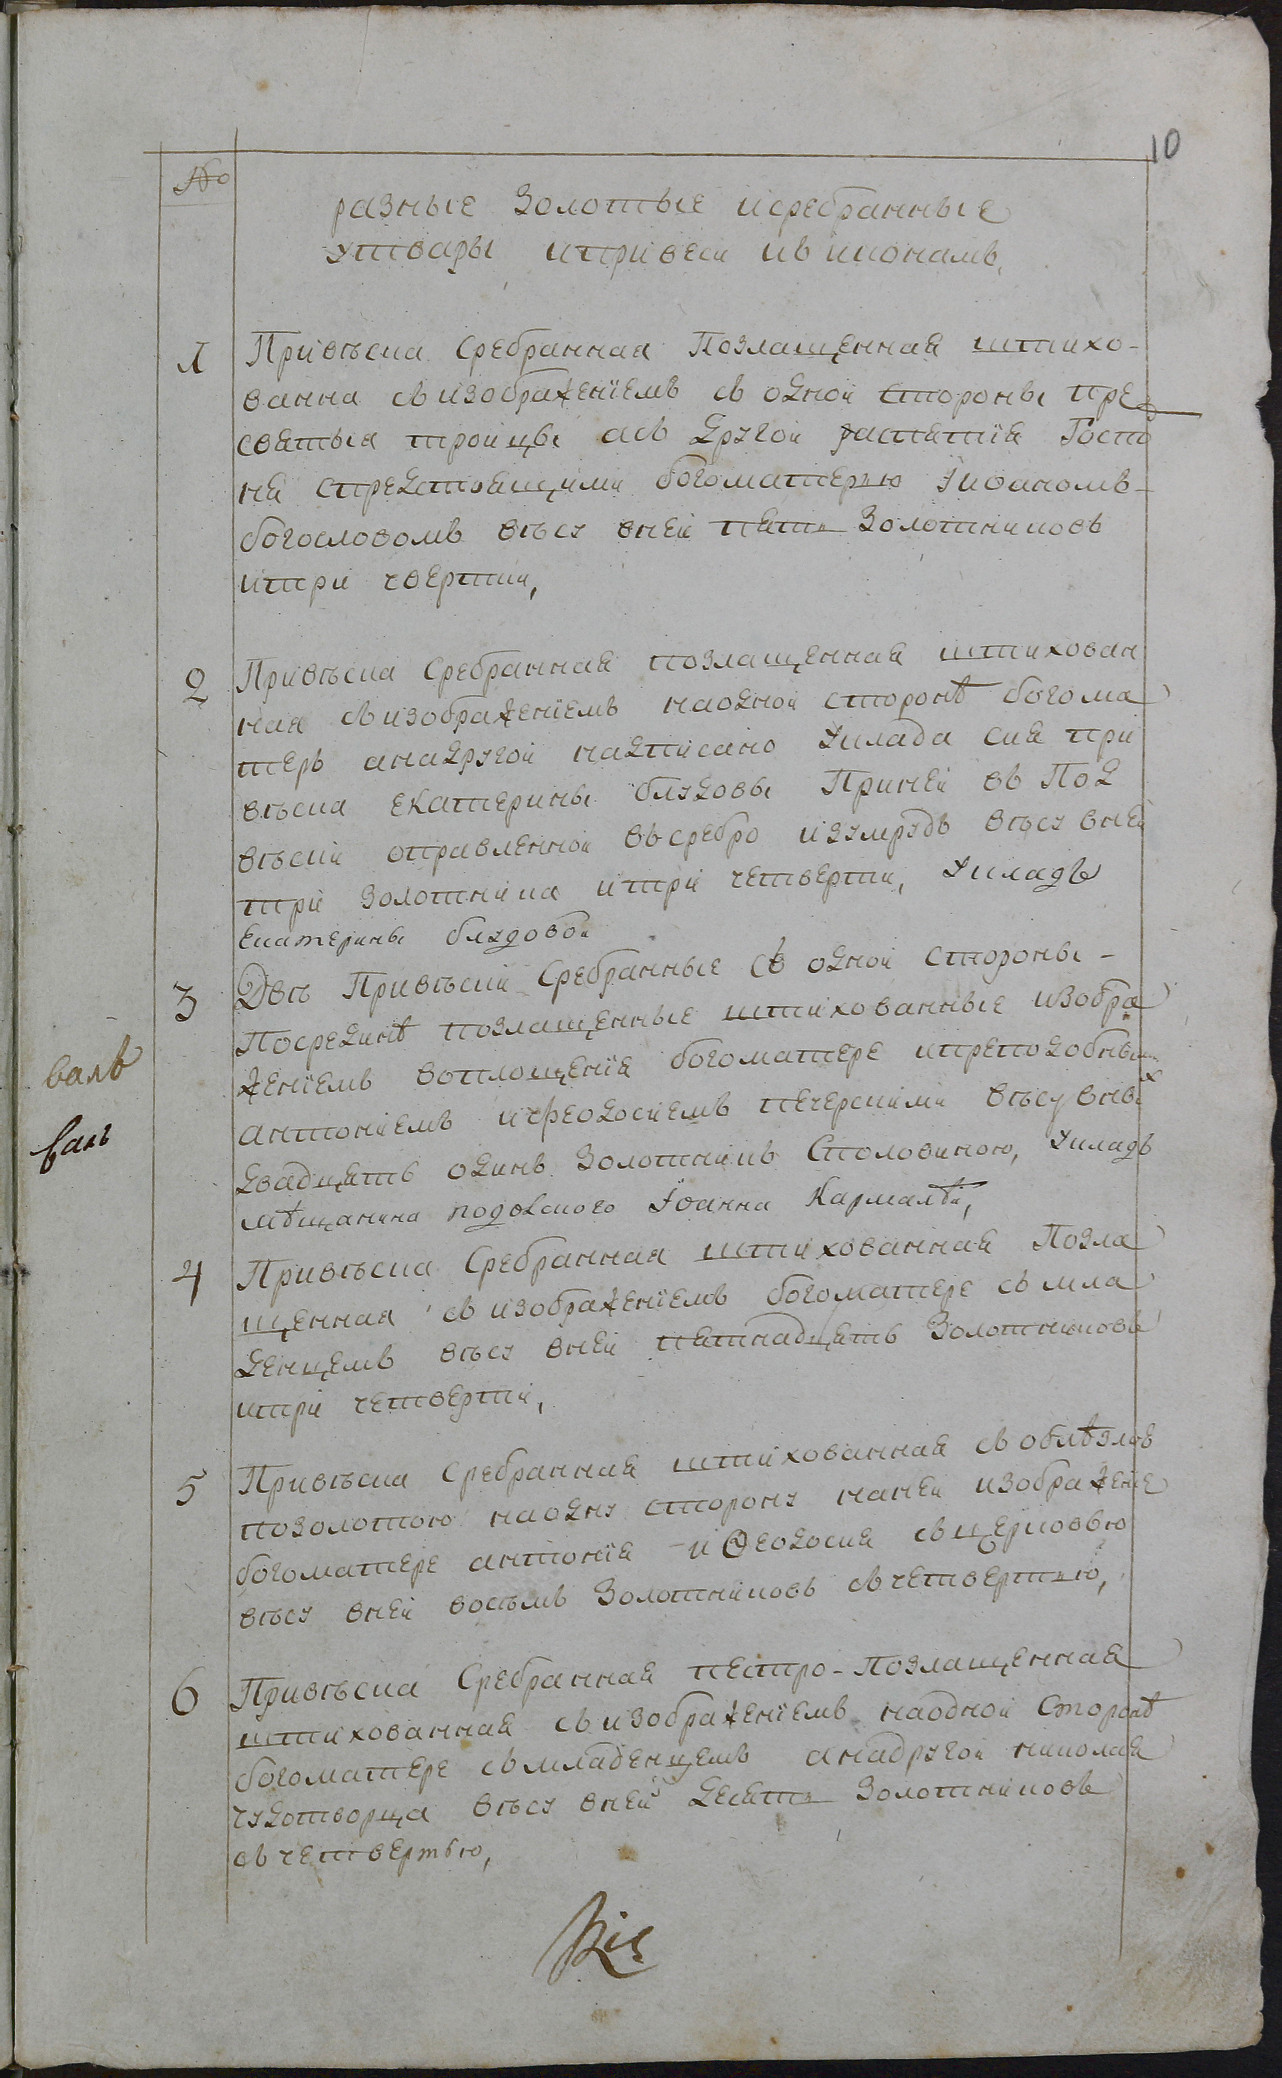 10
№
разные золотые исребранные
утвары ипривеси къ иконамъ,
1 Привѣска сребранная Позлащенная штихо-
ванна съ изображенїемъ съ одной стороны пре
святыя троицы асъ другой распятїя Госпо
ня спредстоящими богоматерью Іиоаномъ-
богословомъ вѣсу вней пять золотниковъ
итри чверти,
2 Привѣска сребранная позлащенная штихован
ная съ изображенїемъ наодной сторонѣ богома
терь анадругой надписано уклада сия при
вѣска екатерины блудовы Приней въ Под
вѣски оправленной въ сребро изумрудъ вѣсу вней
три золотника итри четверти, укладъ
екатерины блудовой
3 Двѣ Привѣски Сребранные съ одной стороны -
Посрединѣ позлащенные штихованные изобра
женїемъ воплощенїя богоматере ипреподобны
антониемъ ифеодосиемъ печерскими вѣсу вних
двадцать одинъ золотникъ Споловиною, укладъ
мѣщанина подолского Іоанна Кармалѣи,
4 Привѣска Сребранная штихованная Позла
щенная съ изображенїемъ богоматере съ мла
денцемъ вѣсу вней пятнадцать золотниковъ
итри четверти,
5 Привѣска сребранная штихованная съ облѣзлою
позолотою наодну сторону наней изображение
богоматере антонїя и Ѳеодосия съ церковью
вѣсу вней восьмь золотниковъ съ четвертью,
6 Привѣска Сребранная пестро-позлащенная
штихованная съ изображенїемъ наодной Сторонѣ
богоматере съ младенцемъ анадругой николая
чудотворца вѣсу вней десять золотниковъ
съ четвертью,